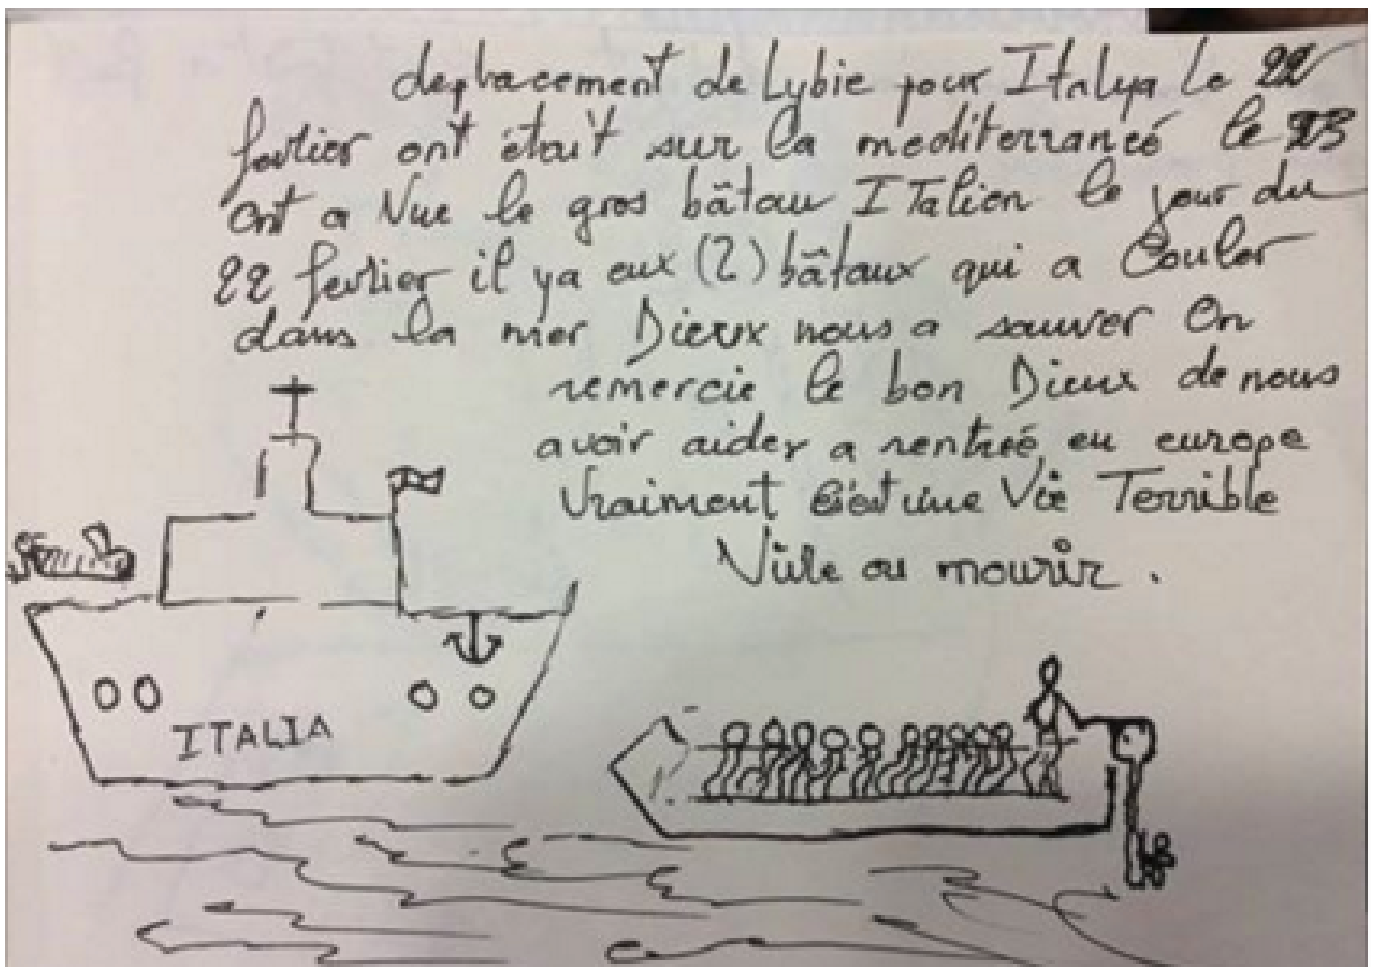 deplacement de Lybie pour Italya le 22
fevrier ont était sur la mediterraneé le 23
ont a Vue le gros bâtau ITalien le jour du
22 fevrier il ya eux (2) bâtaux qui a Couler
dans la mer Dieux nous a sauver On
remercie le bon Dieux de nous
avoir aider a rentreé en europe
Vraiment c'est une Vie Terrible
Vivre ou mourir.
ITALIA